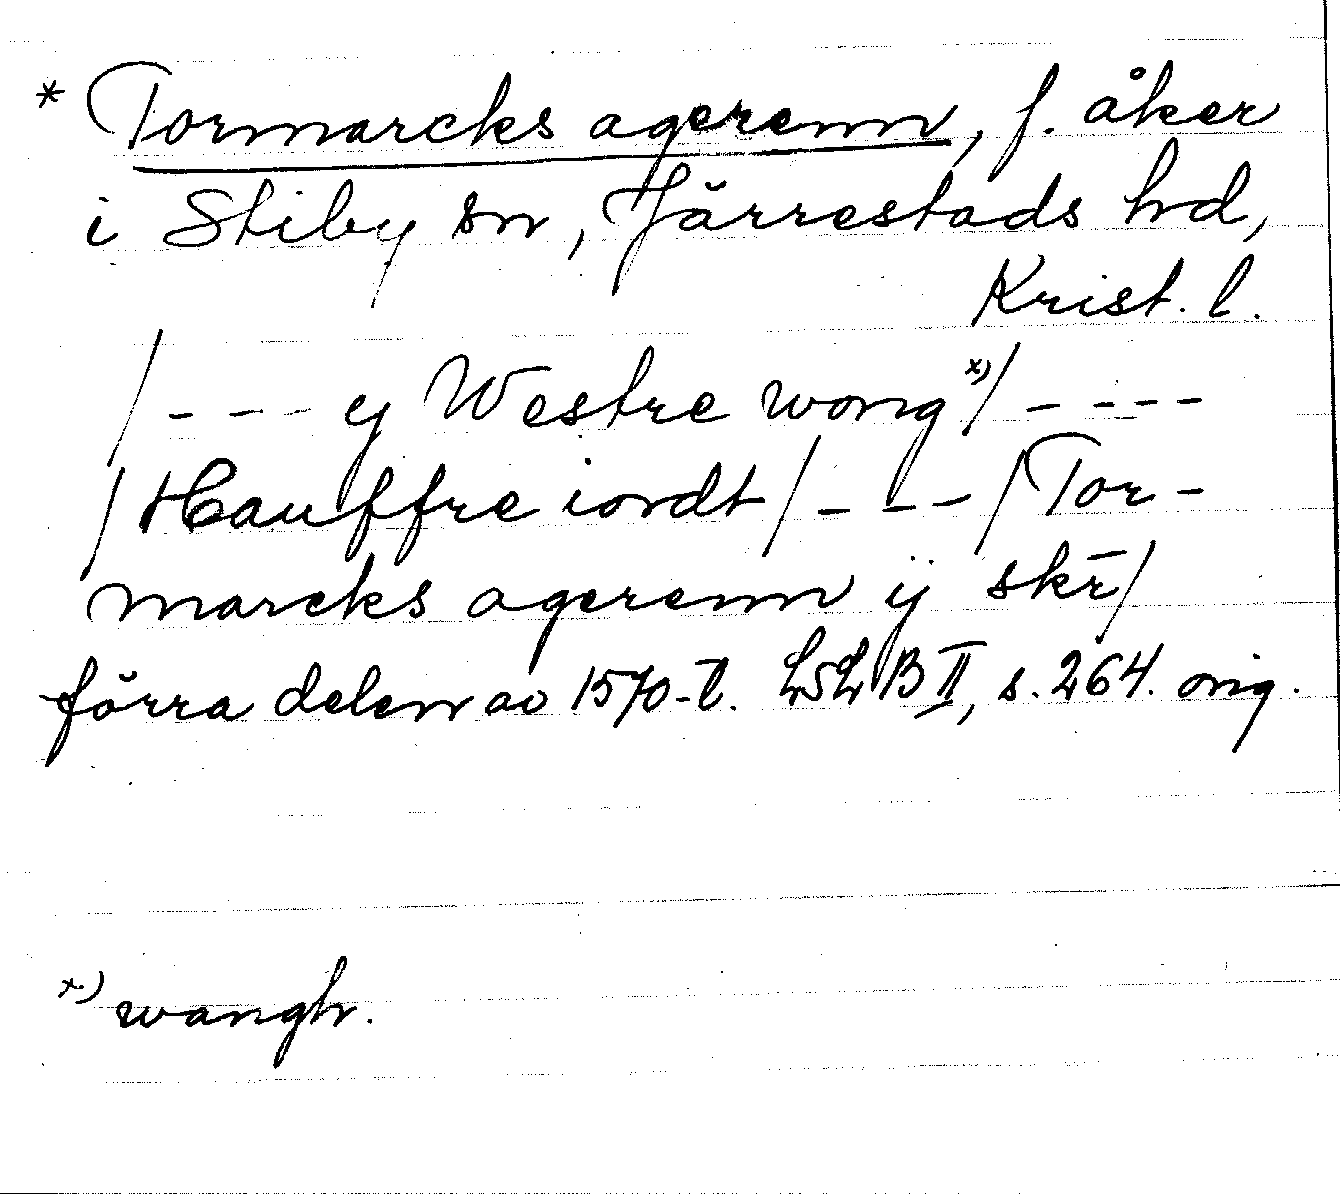 * Tormarcks agerenn, f. åker
i Stiby sn, Järrestads hd,
Krist. l.
/ - - - ej Westre wong x)/ - - - -
/Hauffre iordt/ - - - /Tor-
marcks agerenn ij skr̄/
förra delen av 1570-t. LSLB II, s. 264. orig.
x) wangh.